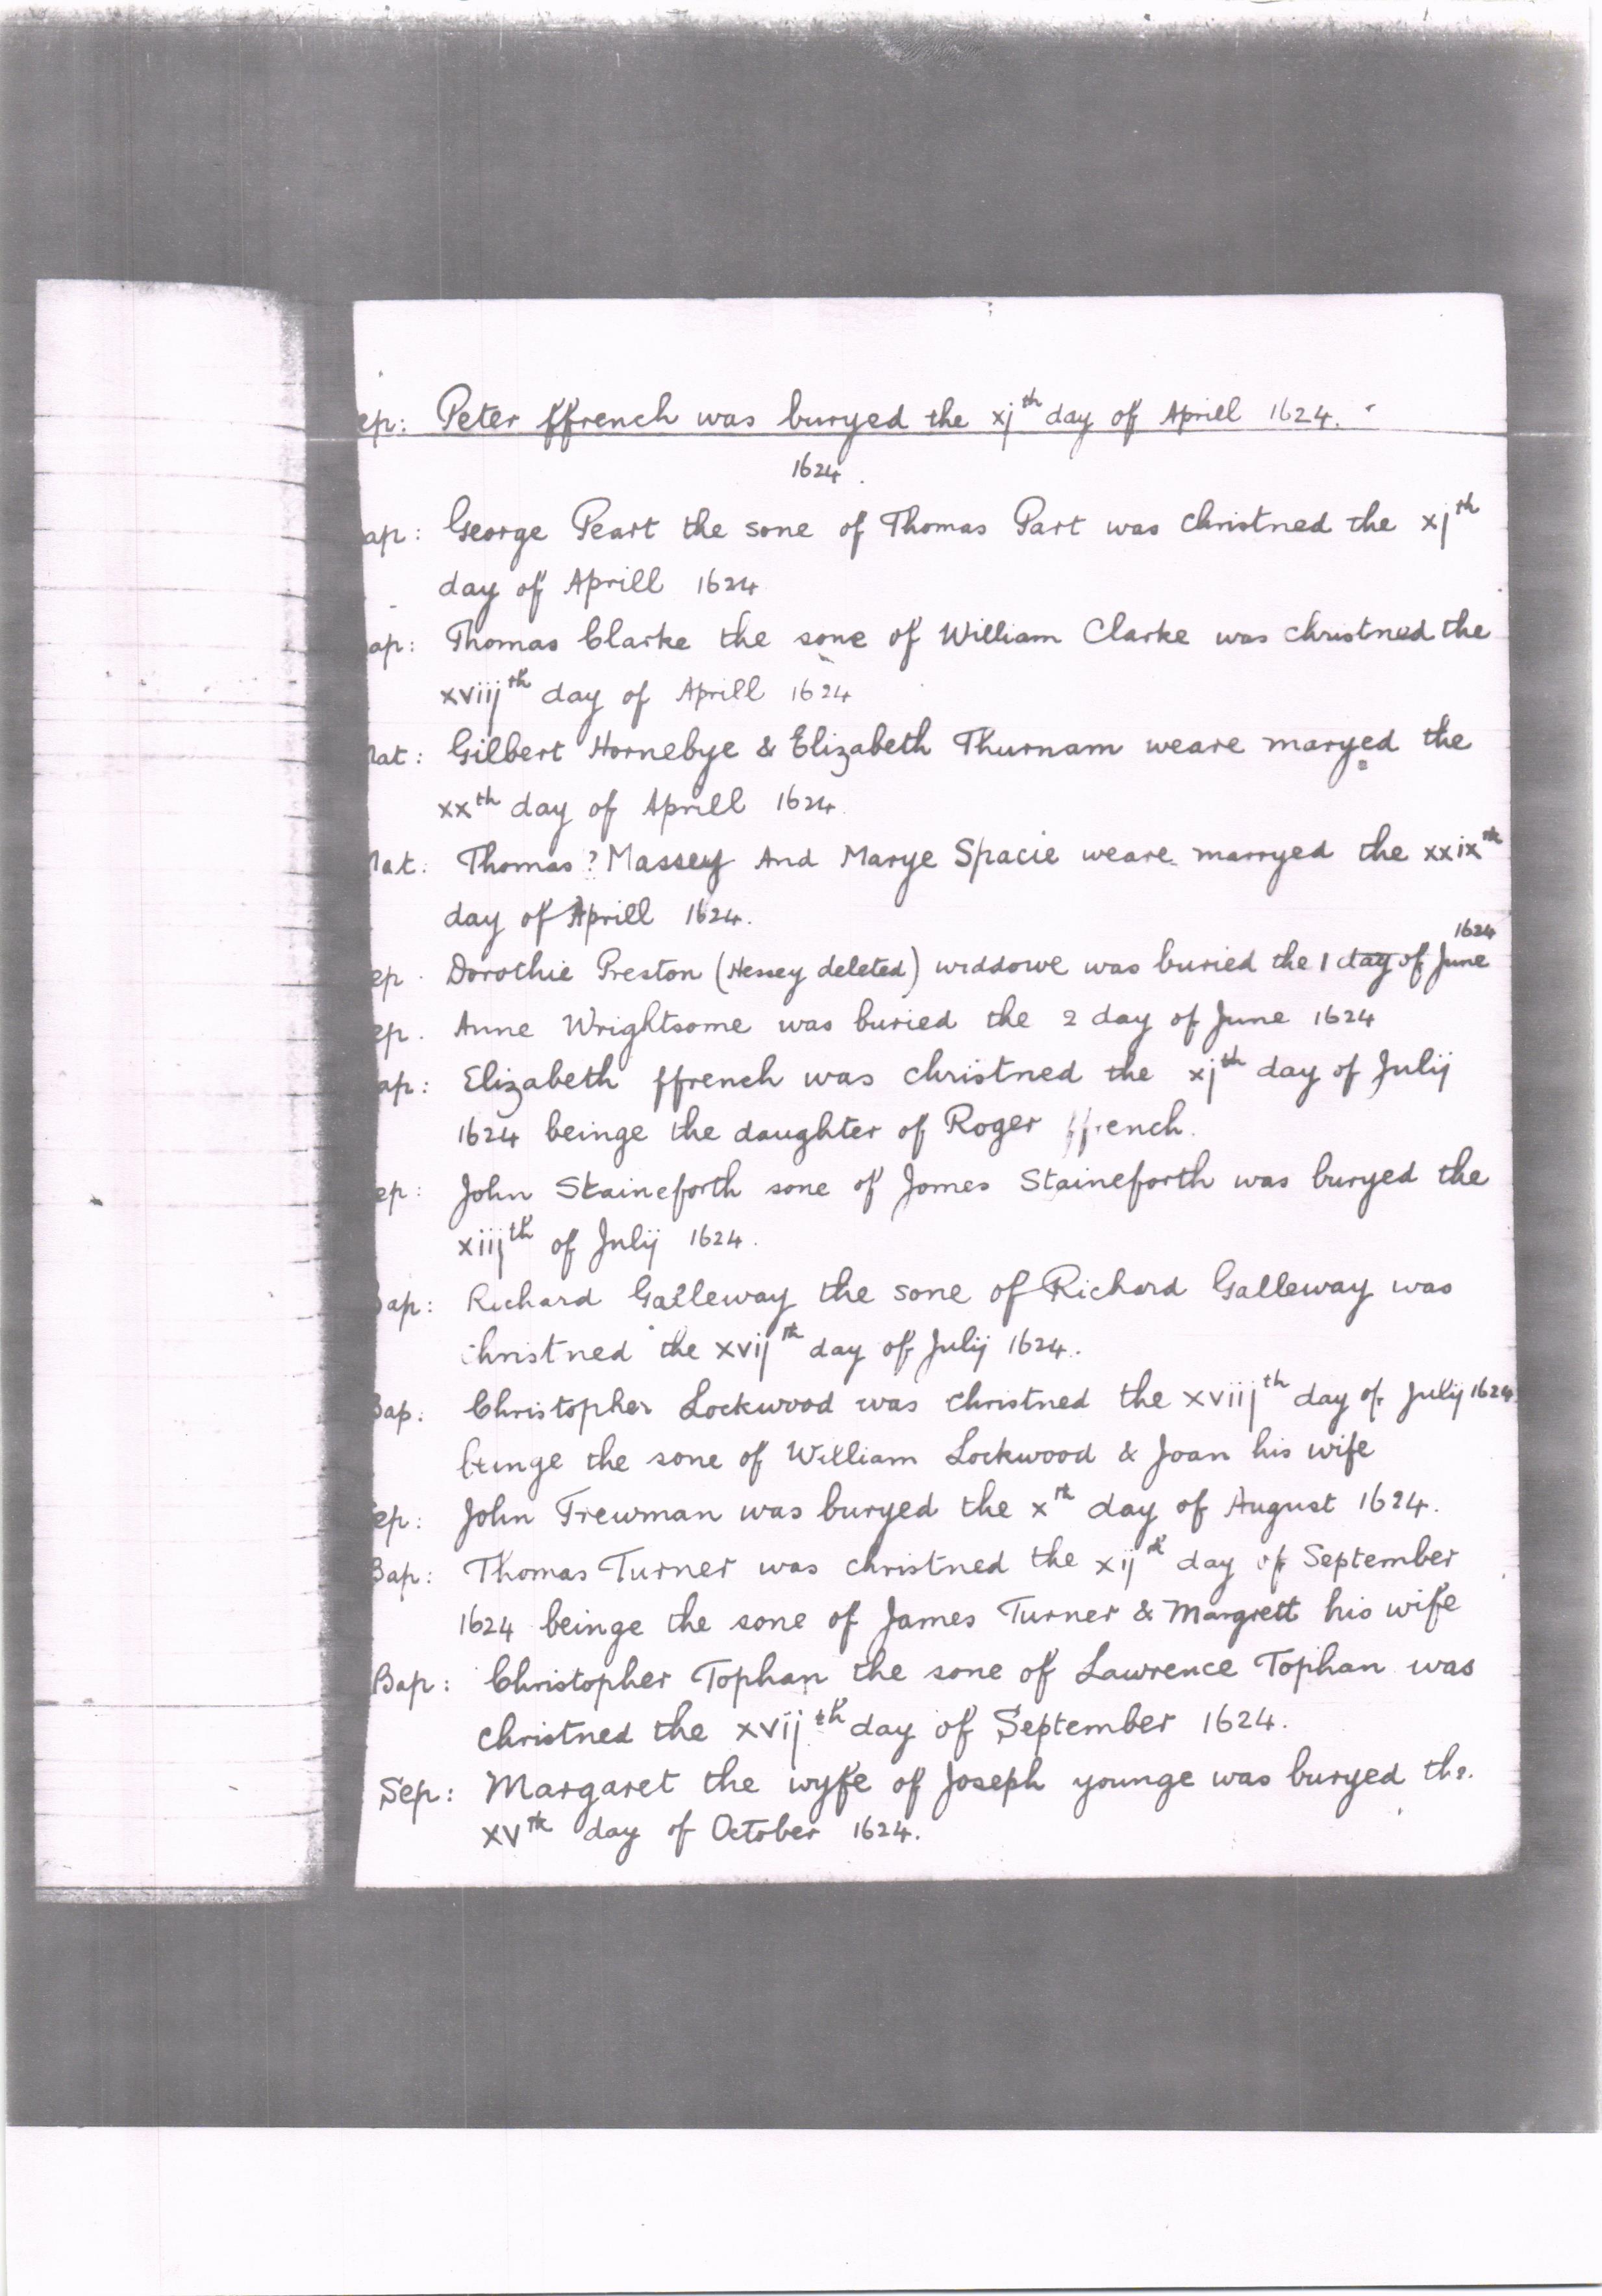 ep: Peter ffrench was buryed the xjth day of Aprill 1624.
1624.
ap: George Peart the sone of Thomas Part was christned the xjth
day of Aprill 1624
ap: Thomas Clarke the sone of William Clarke was christned the
xviijth day of Aprill 1624
Mat: Gilbert Hornebye & Elizabeth Thurnam weare maryed the
xxth day of Aprill 1624.
Mat: Thomas ? Massey And Marye Spacie weare marryed the xxixth
day of Aprill 1624.
1624
ep. Dorothie Preston (Hessey deleted) widdowe was buried the 1 day of June
ep. Anne Wrightsome was buried the 2 day of June 1624
ap: Elizabeth ffrench was christned the xjth day of Julij
1624 beinge the daughter of Roger ffrench.
ep: John Staineforth sone of James Staineforth was buryed the
xiijth of Julij 1624.
Bap: Richard Galleway the sone of Richard Galleway was
christned the xvijth day of Julij 1624.
Bap. Christopher Lockwood was christned the xviijth day of Julij 1624
beinge the sone of William Lockwood & Joan his wife
Sep: John Trewman was buryed the xth day of August 1624.
Bap: Thomas Turner was christned the xijth day of September
1624 beinge the sone of James Turner & Margrett his wife
Bap: Christopher Tophan the sone of Lawrence Tophan was
christned the xvijth day of September 1624.
Sep: Margaret the wyfe of Joseph younge was buryed the
xvth day of October 1624.